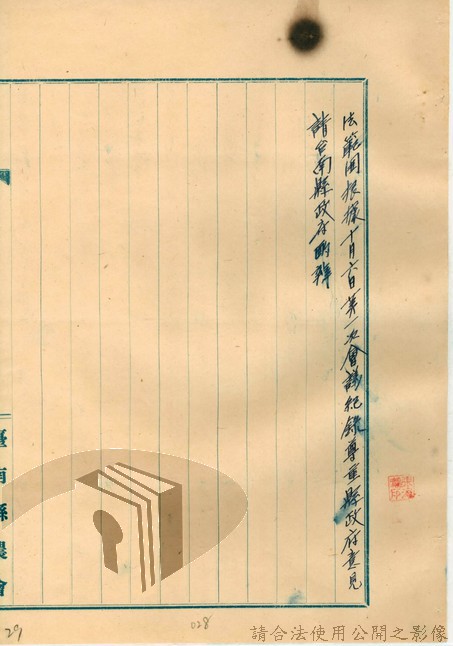 法範圍根據十月六日第一次會議紀錄尊重縣政府意見
請台南縣政府明辦
臺南縣農會
29
028
請合法使用公開之影像